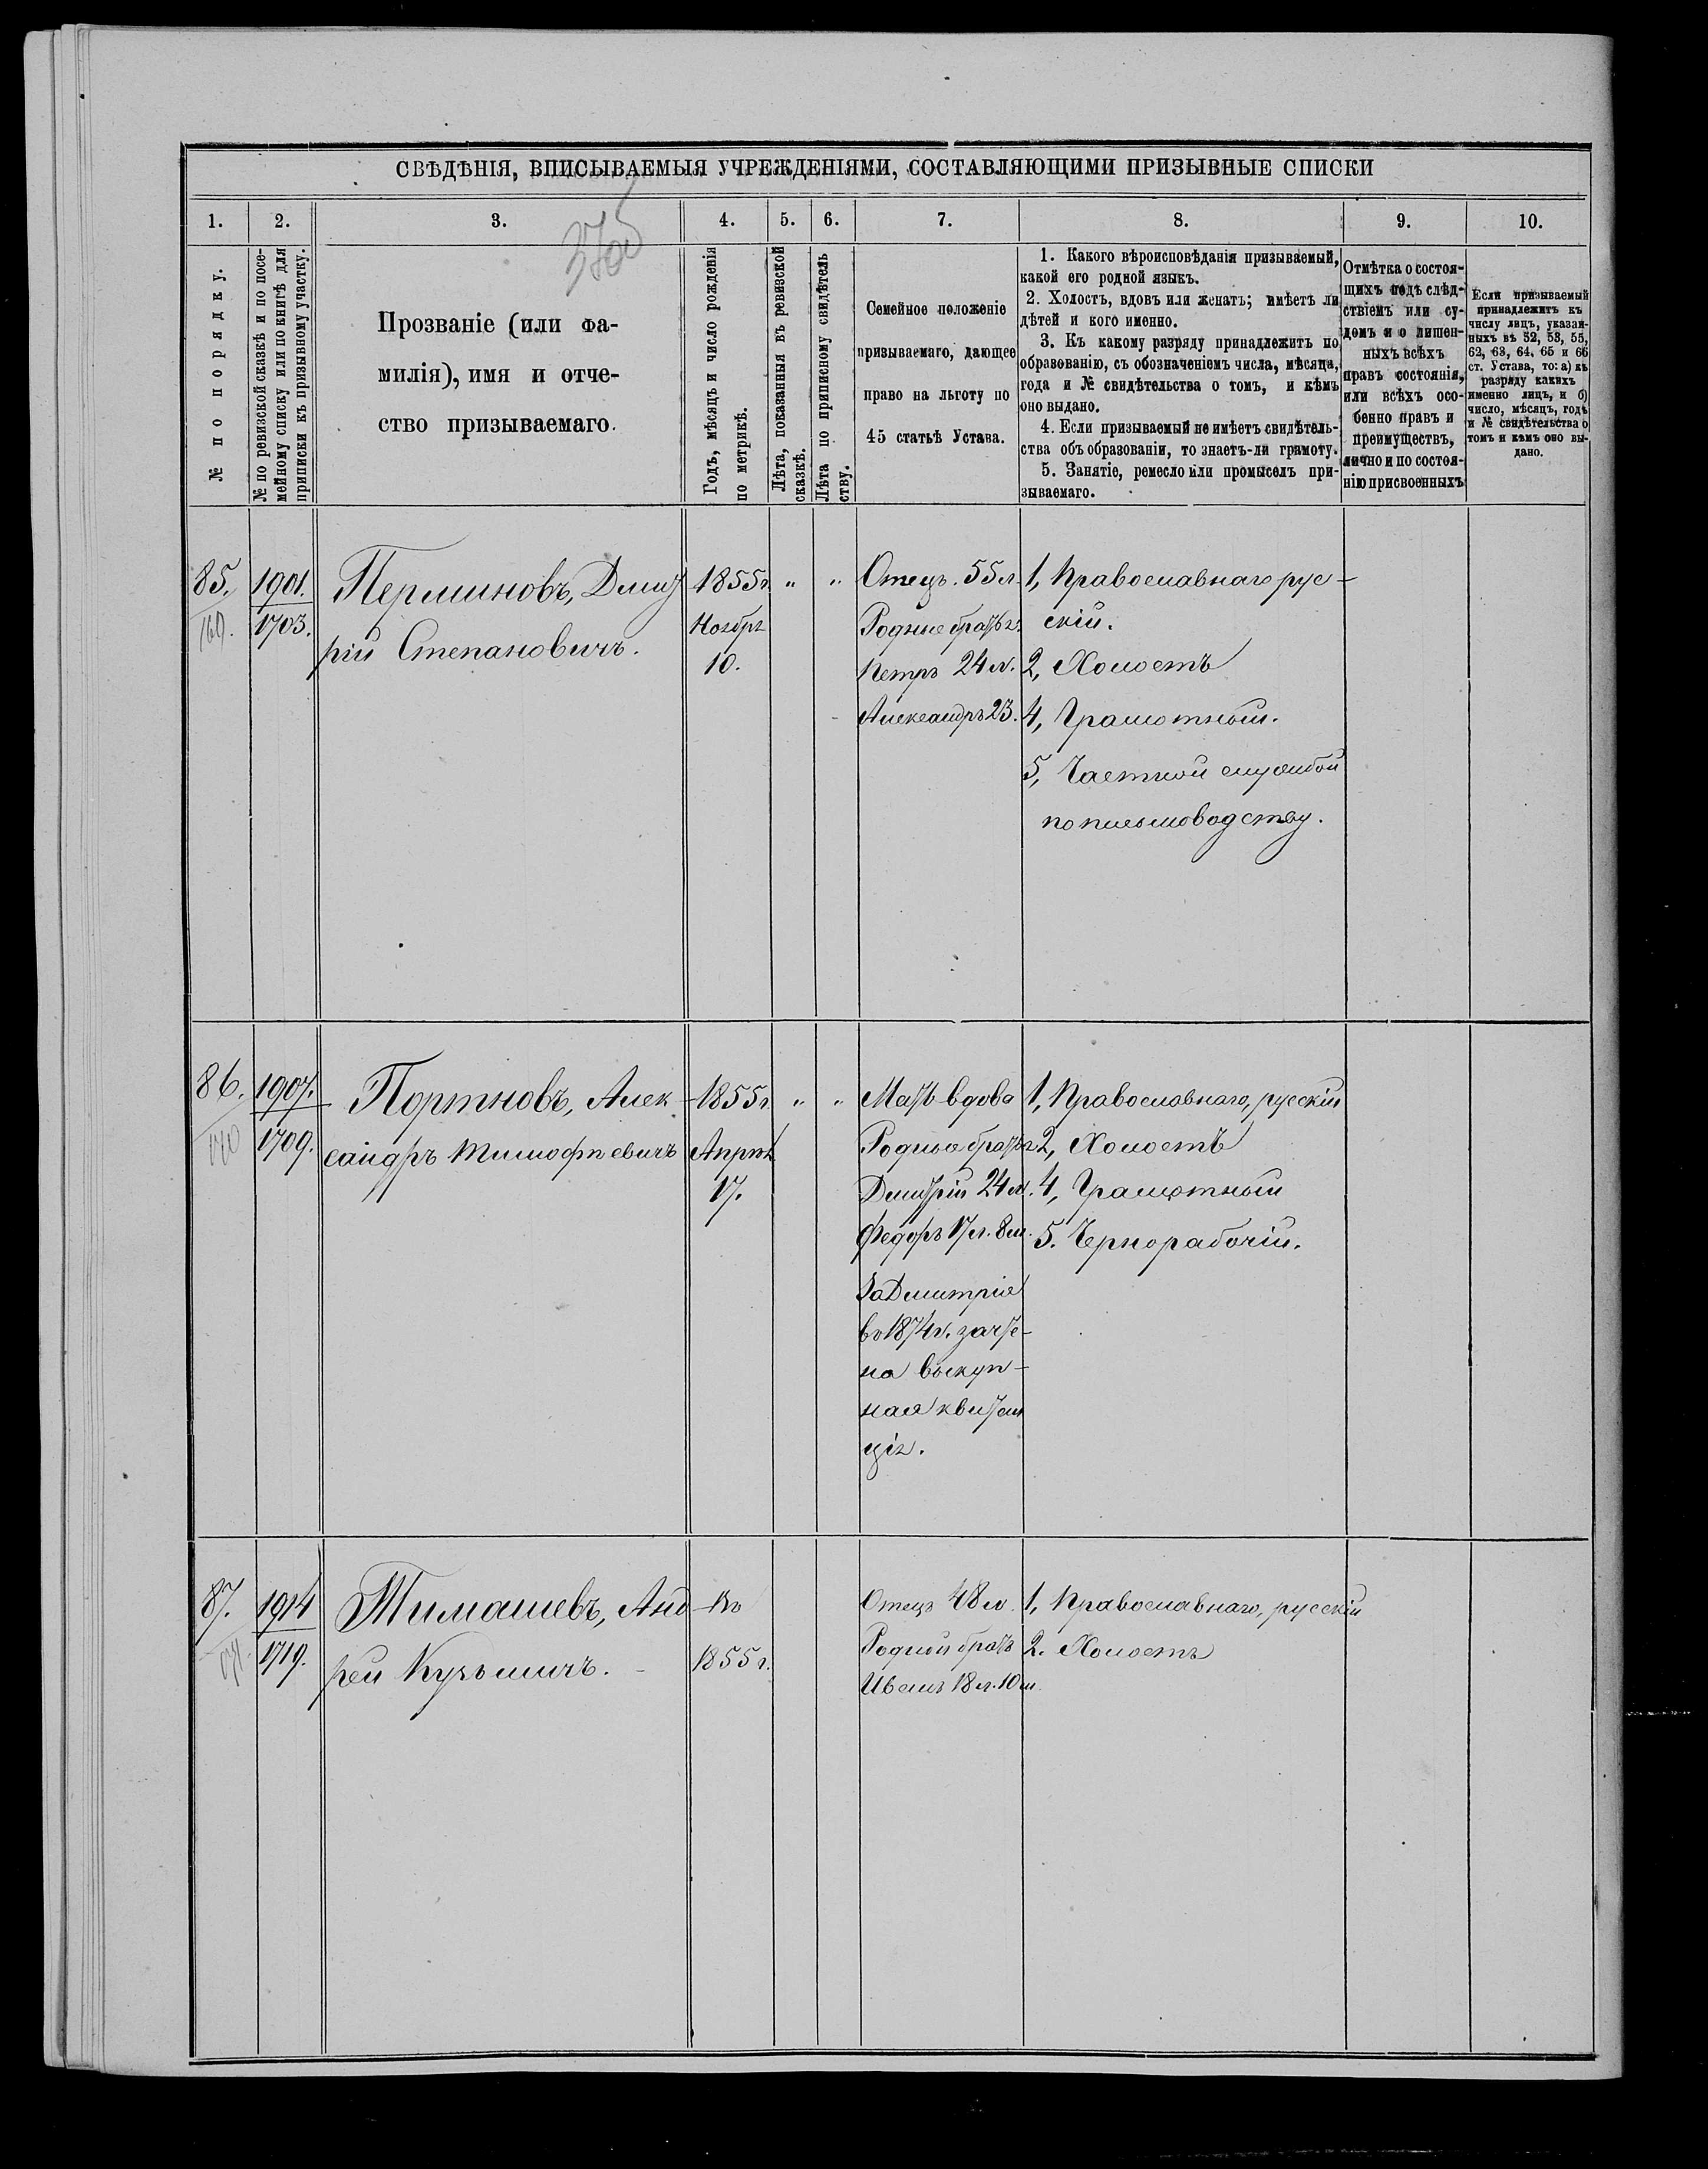 СВѢДѢНІЯ, ВПИСЫВАЕМЫЯ УЧРЕЖДЕНІЯМИ, СОСТАВЛЯЮЩИМИ ПРИЗЫВНЫЕ СПИСКИ
1. 2. 3. 4. 5. 6. 7. 8. 9. 10.
№ по порядку.
№ по ревизской сказкѣ и по посе-
мейному списку или по книгѣ для
приписки къ призывному участку.
Прозваніе (или фа-
милія), имя и отче-
ство призываемаго.
Годъ, мѣсяцъ и число рожденія
по метрикѣ.
Лѣта, показанныя въ ревизской
сказкѣ.
Лѣта по приписному свидѣтель
ству.
Семейное положеніе
призываемаго, дающее
право на льготу по
45 статьѣ Устава.
1. Какого вѣроисповѣданія призываемый,
какой его родной языкъ.
2. Холостъ, вдовъ или женатъ; имѣетъ ли
дѣтей и кого именно.
3. Къ какому разряду принадлежитъ по
образованію, съ обозначеніемъ числа, мѣсяца,
года и № свидѣтельства о томъ, и кѣмъ
оно выдано.
4. Если призываемый не имѣетъ свидѣтель-
ства объ образованіи, то знаетъ-ли грамоту.
5. Занятіе, ремесло или промыселъ при-
зываемаго.
Отмѣтка о состоя-
щихъ подъ слѣд-
ствіемъ или су-
домъ и о лишен-
ныхъ всѣхъ
правъ состоянія,
или всѣхъ осо-
бенно правъ и
преимуществъ,
лично и по состоя-
нію присвоенныхъ
Если призываемый
принадлежитъ къ
числу лицъ, указан-
ныхъ въ 52, 53, 55,
62, 63, 64, 65 и 66
ст. Устава, то: а) къ
разряду какихъ
именно лицъ, и б)
число, мѣсяцъ, годъ
и № свидѣтельства о
томъ и кѣмъ оно вы-
дано.
85.
169.
1901.
1703.
Перминовъ, Дмит
рій Степановичъ.
1855 г.
Ноября
10.
" "
Отецъ. 55 л.
Родные братья:
Петръ 24 л.
Александръ 23.
1, Православнаго рус-
скій.
2, Холостъ
4, Грамотный.
5, Частной службой
по письмоводству.
86.
170
1907.
1709.
Портновъ, Алек-
сандръ Тимофѣевичъ
1855 г.
Апрѣля
17.
" "
Мать вдова
Родные братья
Дмитрій 24 л.
Федоръ 17 л. 8 м.
За Дмитрія
въ 1874 г. зачте-
на выкуп-
ная квитан
ція.
1, Православнаго, русскій
2, Холостъ
4, Грамотный
5. Чернорабочій.
87.
171.
1914
1719.
Тимашевъ, Анд-
рей Кузьмичъ.
Въ
1855 г.
Отецъ 48 л.
Родной братъ
Иванъ 18 л. 10 м.
1, Православнаго, русскій
2. Холостъ